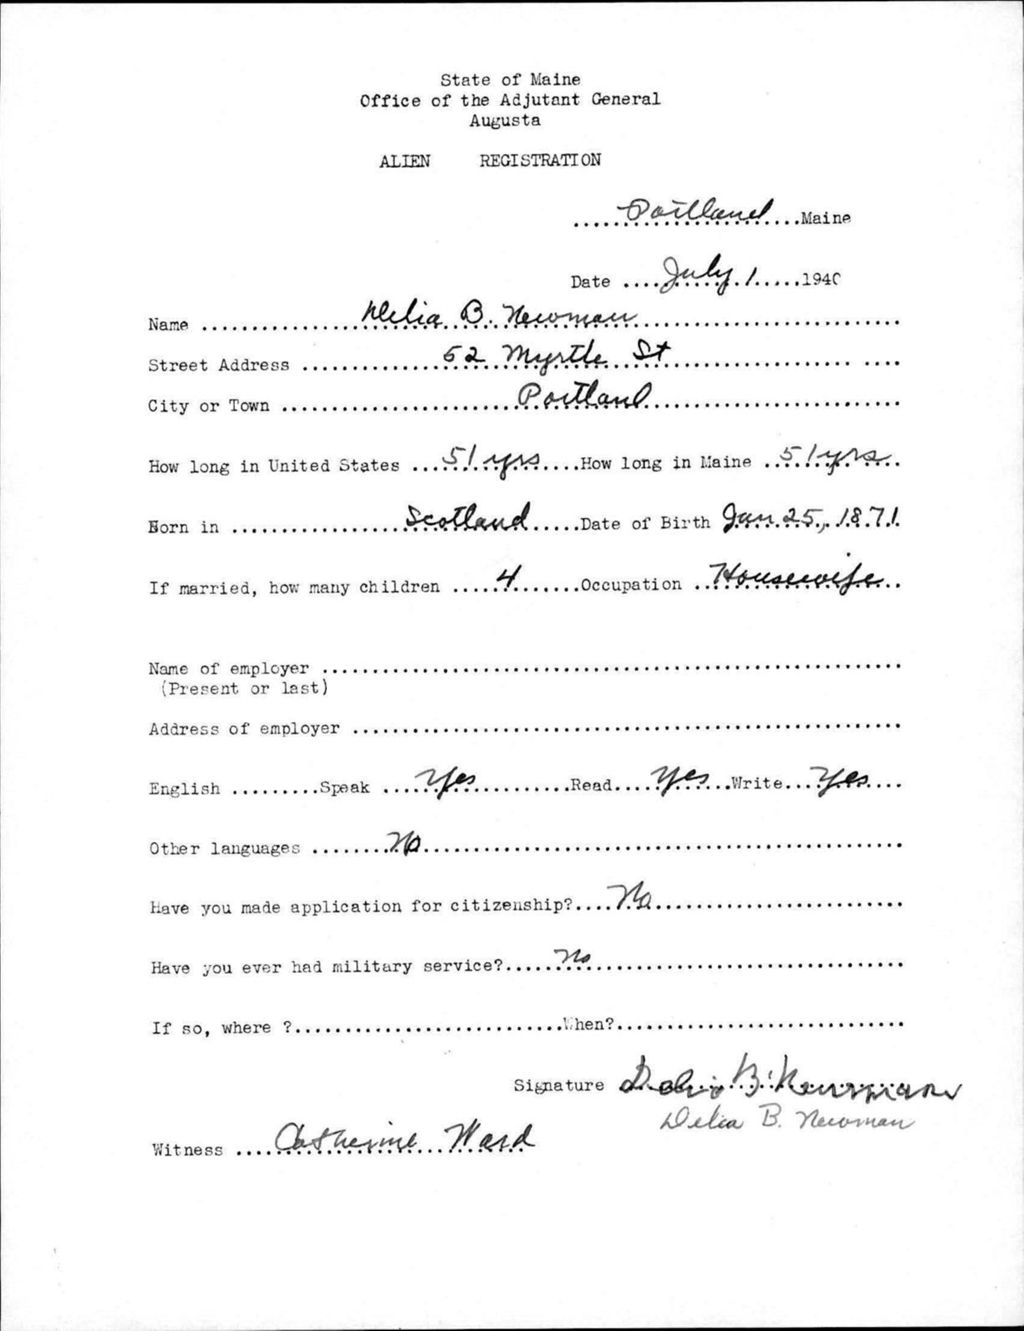 State of Maine
Office of the Adjutant General
Augusta
ALIEN REGISTRATION
.....Portland.....Maine
Date ....July 1.....1940
Name ................Delia B. Newman...........................
Street Address ..............52 Myrtle St.......................
City or Town .......................Portland.........................
How long in United States ...51 yrs....How long in Maine ..51 yrs..
Born in .................Scotland.....Date of Birth Jan. 25, 1871.
If married, how many children ....4.......Occupation ..Housewife..
Name of employer ..........................................................
(Present or last)
Address of employer .......................................................
English .........Speak ....Yes..........Read....Yes...Write...Yes....
Other languages ........No................................................
Have you made application for citizenship?....No.........................
Have you ever had military service?.....No...............................
If so, where ?...........................When?.............................
Signature Delia B. Newman
Delia B. Newman
Witness ....Catherine Ward